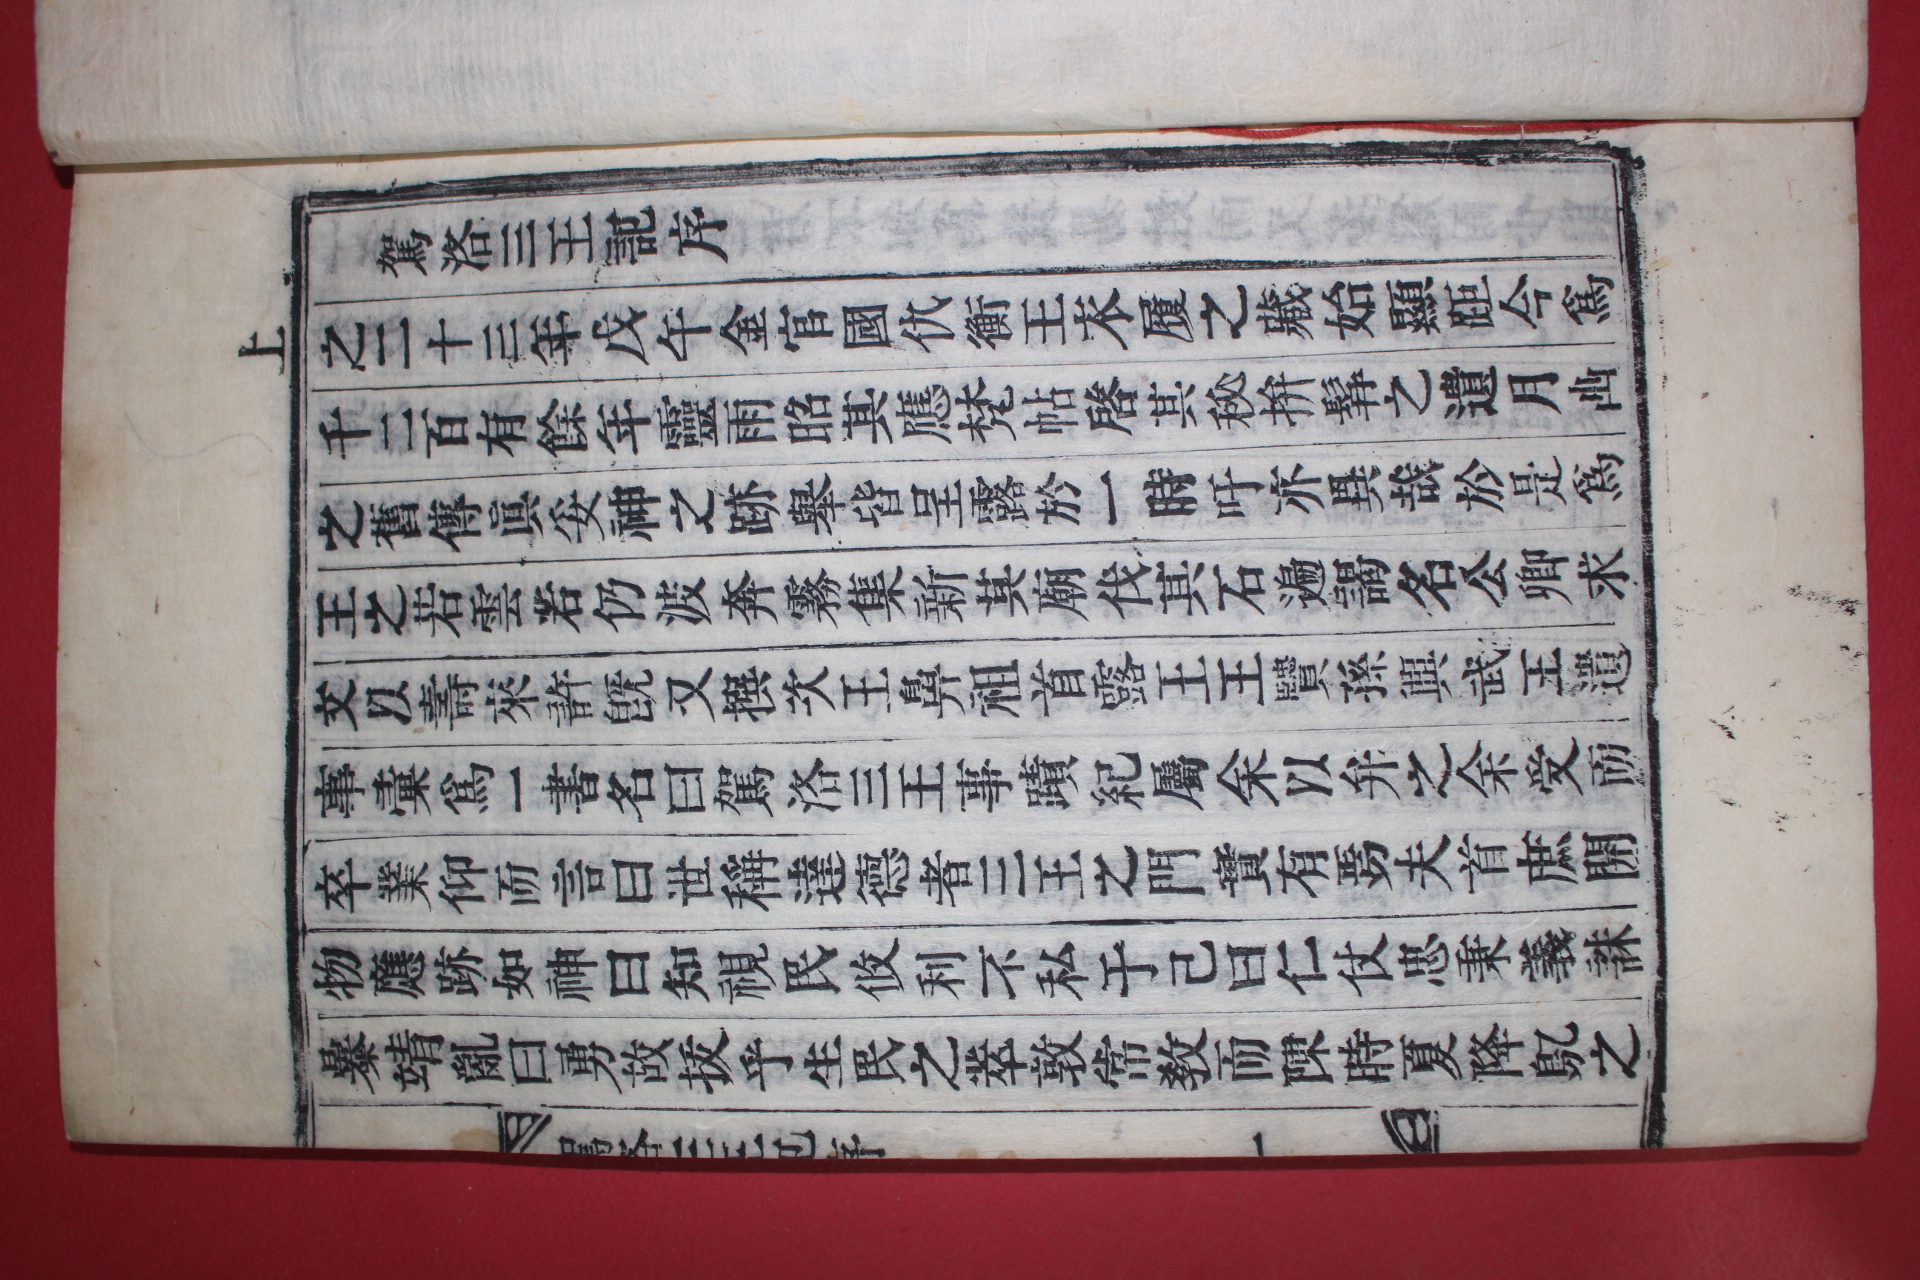 駕洛三王記序
上
之二十三年戊午金官國仇衡王衣履之藏始顯距今爲
千二百有餘年靈雨昭其應梵帖啓其秘拚髯之遺月出
之舊傳眞妥神之跡擧皆呈露於一時吁亦異哉於是爲
王之若雲若仍波奔霧集新其廟伐其石遍謁名公卿求
文以壽來許旣又撰次王鼻祖首露王王賢孫興武王遺
事彙爲一書名曰駕洛三王事蹟紀屬余以弁之余受而
卒業仰而言曰世稱達德者三王之門實有焉夫首庶開
物應跡如神曰知視民攸利不私于己曰仁仗忠秉義誅
暴靖亂曰勇故拔乎生民之萃敦常敎而陳時夏降鳧之
駕洛三王記序
一